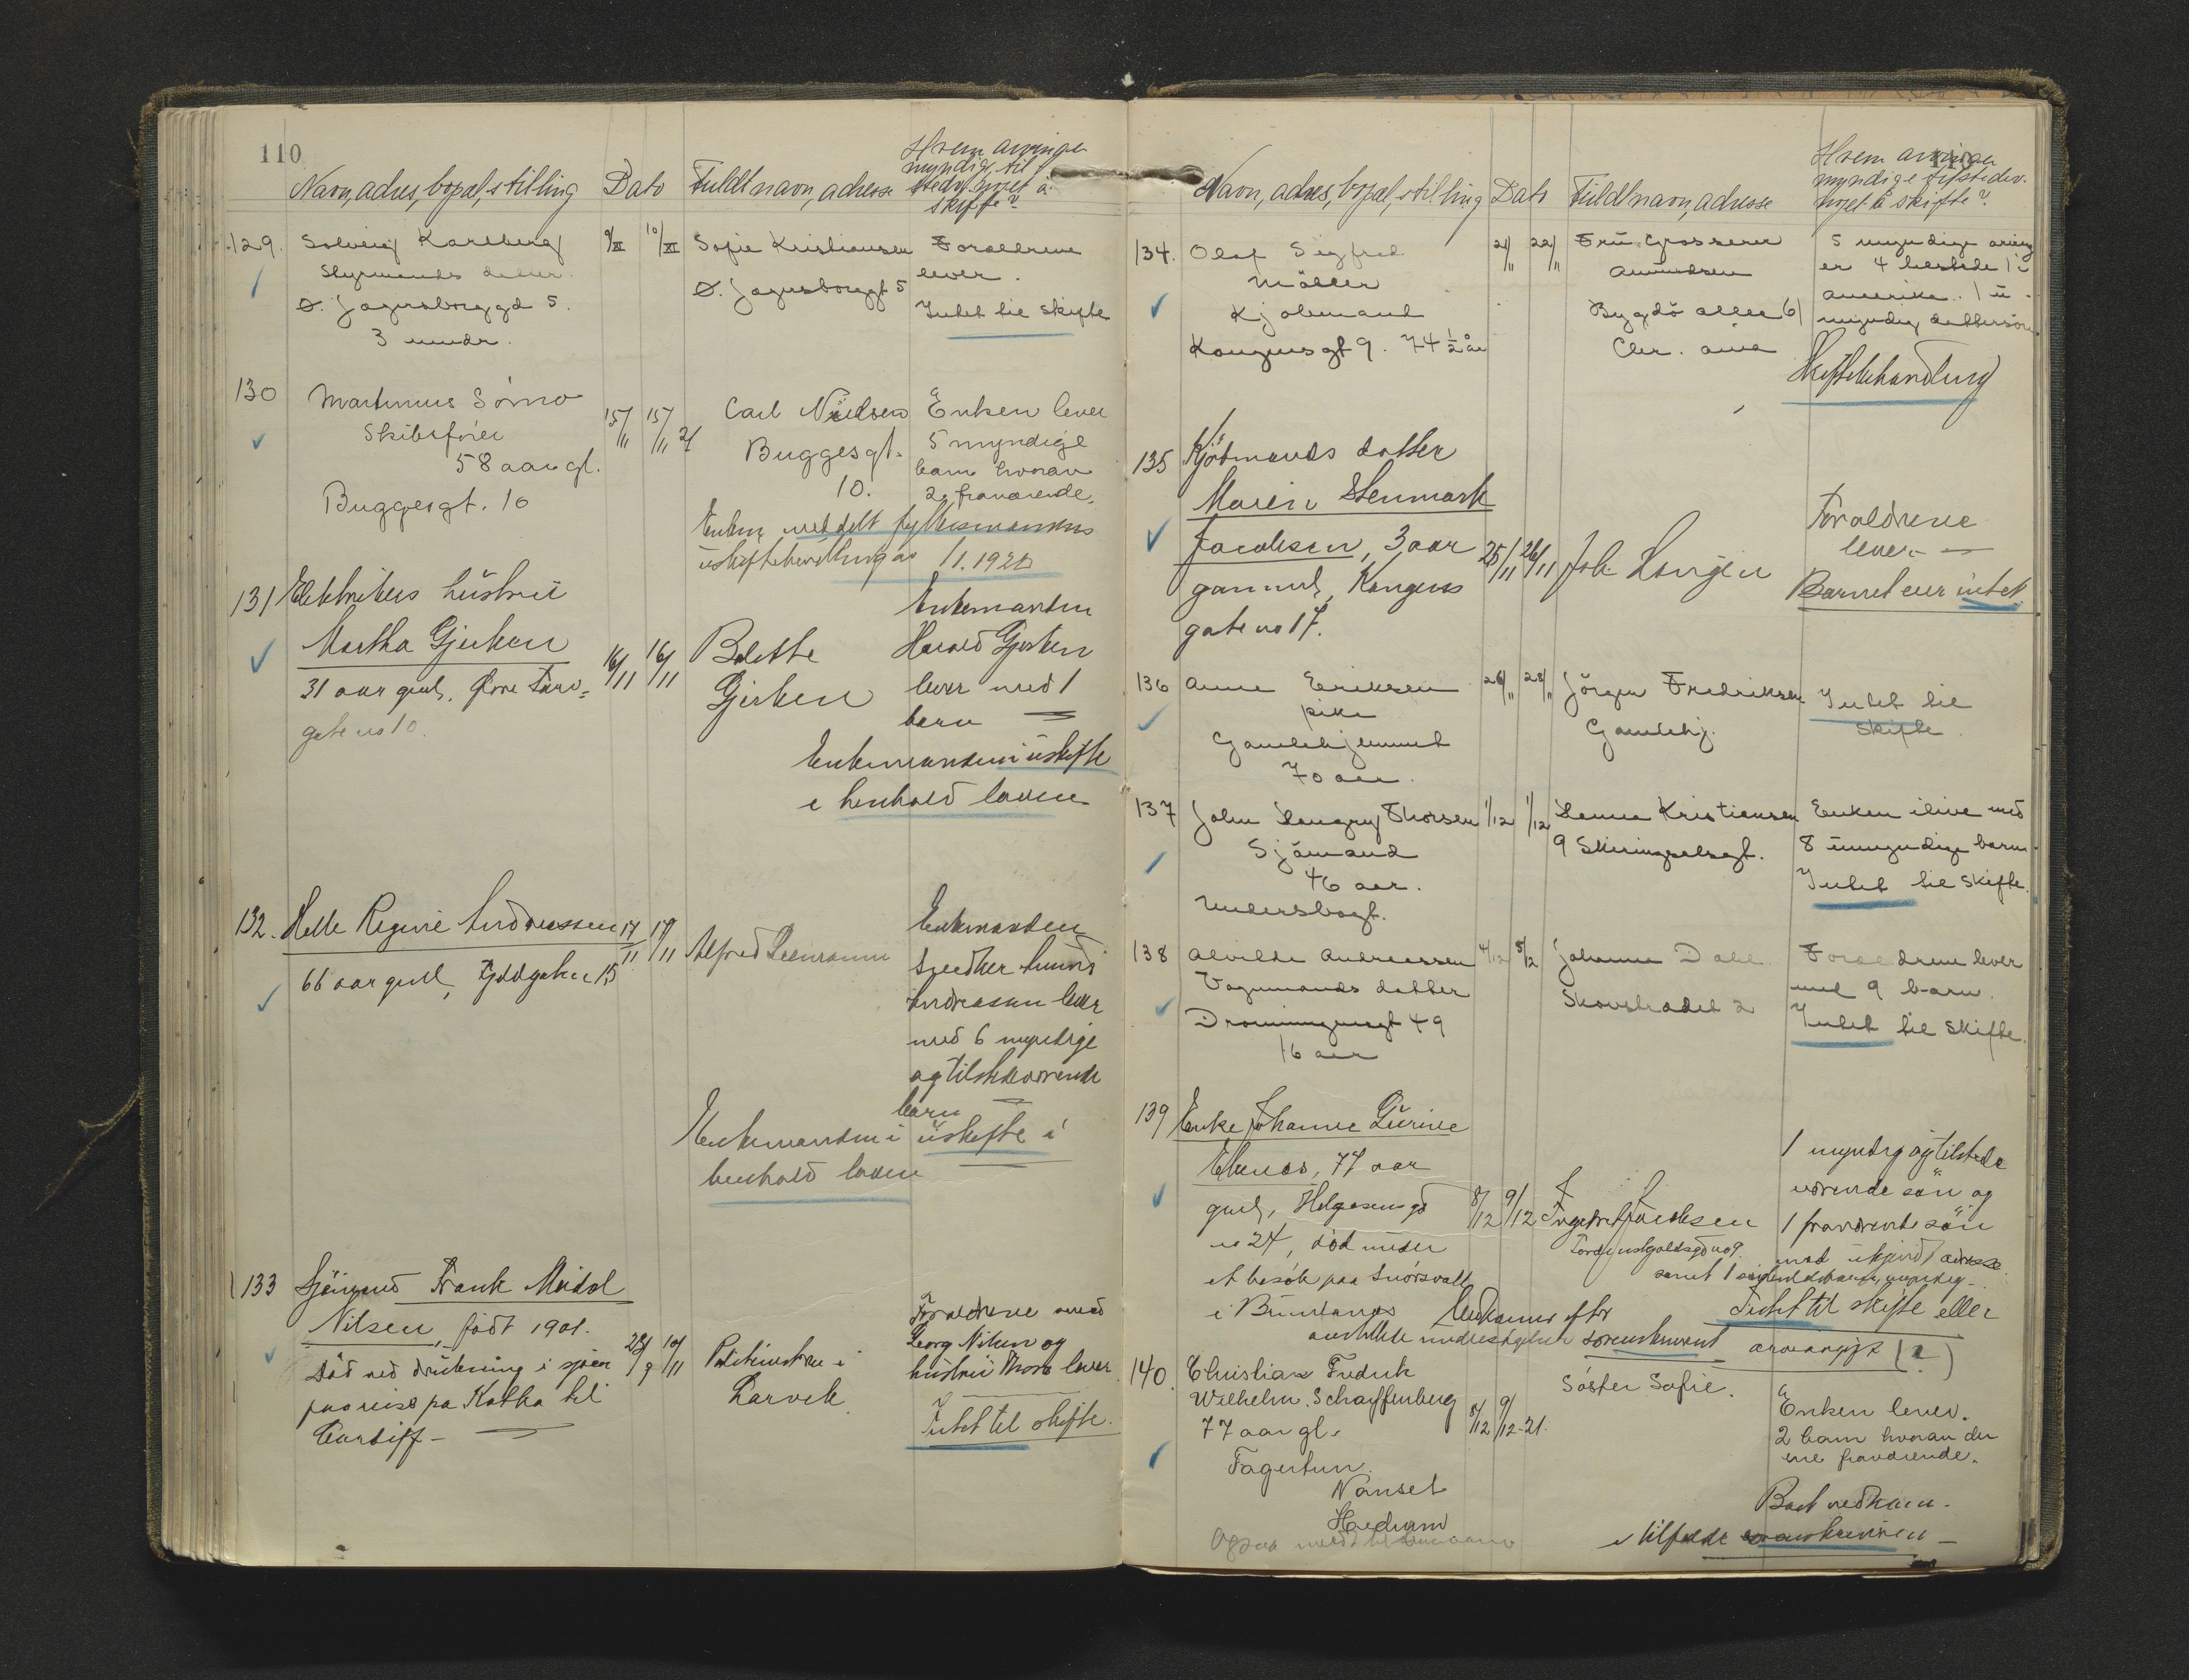 110
Navn, adres, bopæl, stilling
Dato
Fuldt navn, adresse
Hvem arvinge
myndige til
stede noget å
skifte?
129.
Solveig Karlberg
Styrmands datter
Ø. Jegersborggd 5.
3 mndr.
9/XI
10/XI
Sofie Kristiansen
Ø. Jegersborggt 5
Foraldrene
lever.
Intet til skifte
130
Martinius
Skibsfører
58 aar gl.
Buggesgt. 10
15/11
15/11 21
Carl Nielsen
Buggesgt.
10.
Enken lever
5 myndige
barn hvorav
2 fraværende.
Enken meddelt fylkesmannens
uskiftebevilling av
131
Elektrikers hustru
Martha Gjerken
31 aar gml. Øvre Torv=
gate no 10.
16/11
16/11
Bolette
Gjerken
Enkemanden
Harald Gjerken
lever med 1
barn
Enkemanden i uskifte
i henhold loven
132.
Helle Regine Andreassen
66 aar gml,
17/11
17/11
Alfred
Enkemanden
Andreasen lever
med 6 myndige
og tilstedeværende
barn
Enkemanden i uskifte i
henhold loven
133
Sjömand Frank Meidel
Nilsen, født 1901.
Död ved drukning i sjøen
paa reise pa Kotka til
Cardiff -
22/9
10/11
Politimesteren i
Larvik
Foraldrene
Georg Nilsen og
hustru lever.
Intet til skifte.
Navn, adres, bopæl, stilling
Dato
Fuldt navn, adresse
Hvem arvinger
myndige tilstedev.
noget å skifte?
134.
Olaf Sigfred
Möller
Kjolemand
Kongensgt 9. 74 1/2 år
21/11
22/11
Fru Grosserer
Amundsen
Bygdö allee 61
Chr. ania
5 myndige arving
er 4 tilstede 1 i
Amerika. 1 u-
myndig dattersön.
Skiftebehandling
135
Kjöbmands datter
Maren Stenmark
Jacobsen, 3 aar
gammel, Kongens
gate no 17.
25/11
26/11
Joh. Langen
Foraldrene
lever -
Barnet eier intet
136
Anne Eriksen
pike
Gamlehjemmet
70 aar.
26/11
28/11
Jörgen Fredriksen
Gamlehj.
Intet til
skifte
137
John Thorsen
Sjömand
46 aar.
1/12
1/12
Hanna Kristiansen
9 Skiringsalsgt.
Enken ilive med
8 umyndige barn.
Intet til skifte.
138
Alvilde Andreassen
Vognmands datter
Dronningensgt 49
16 aar
4/12
5/12
Johanne Dahl
Skovstradet 2
Foraldrene lever
med 9 barn.
Intet til skifte.
139
Enke Johanne Gurine
77 aar
gml, Helgesensgd
no 24, död under
et besök paa
i Brunlanes
8/12
9/12
Jacobsen
Tordenskjoldsgd no 9.
1 myndig og tilstede
værende sön og
1 fraværende sön
med ukjendt adresse
samt 1
Intet til skifte eller
arveavgift (?)
sorenskriveren
140
Christian Fredrik
Wilhelm Scharffenberg
77 aar gl.
Fagertun.
Nanset
Hedrum
8/12
9/12-21.
Söster Sofie.
Enken lever.
2 barn hvorav den
ene fraværende.
Bort vedkom.
i tilfælde sorenskriveren -